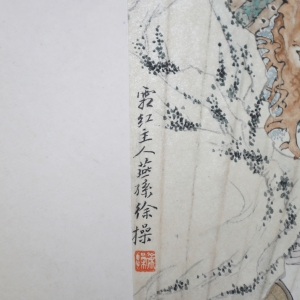 霜红主人燕孫徐操